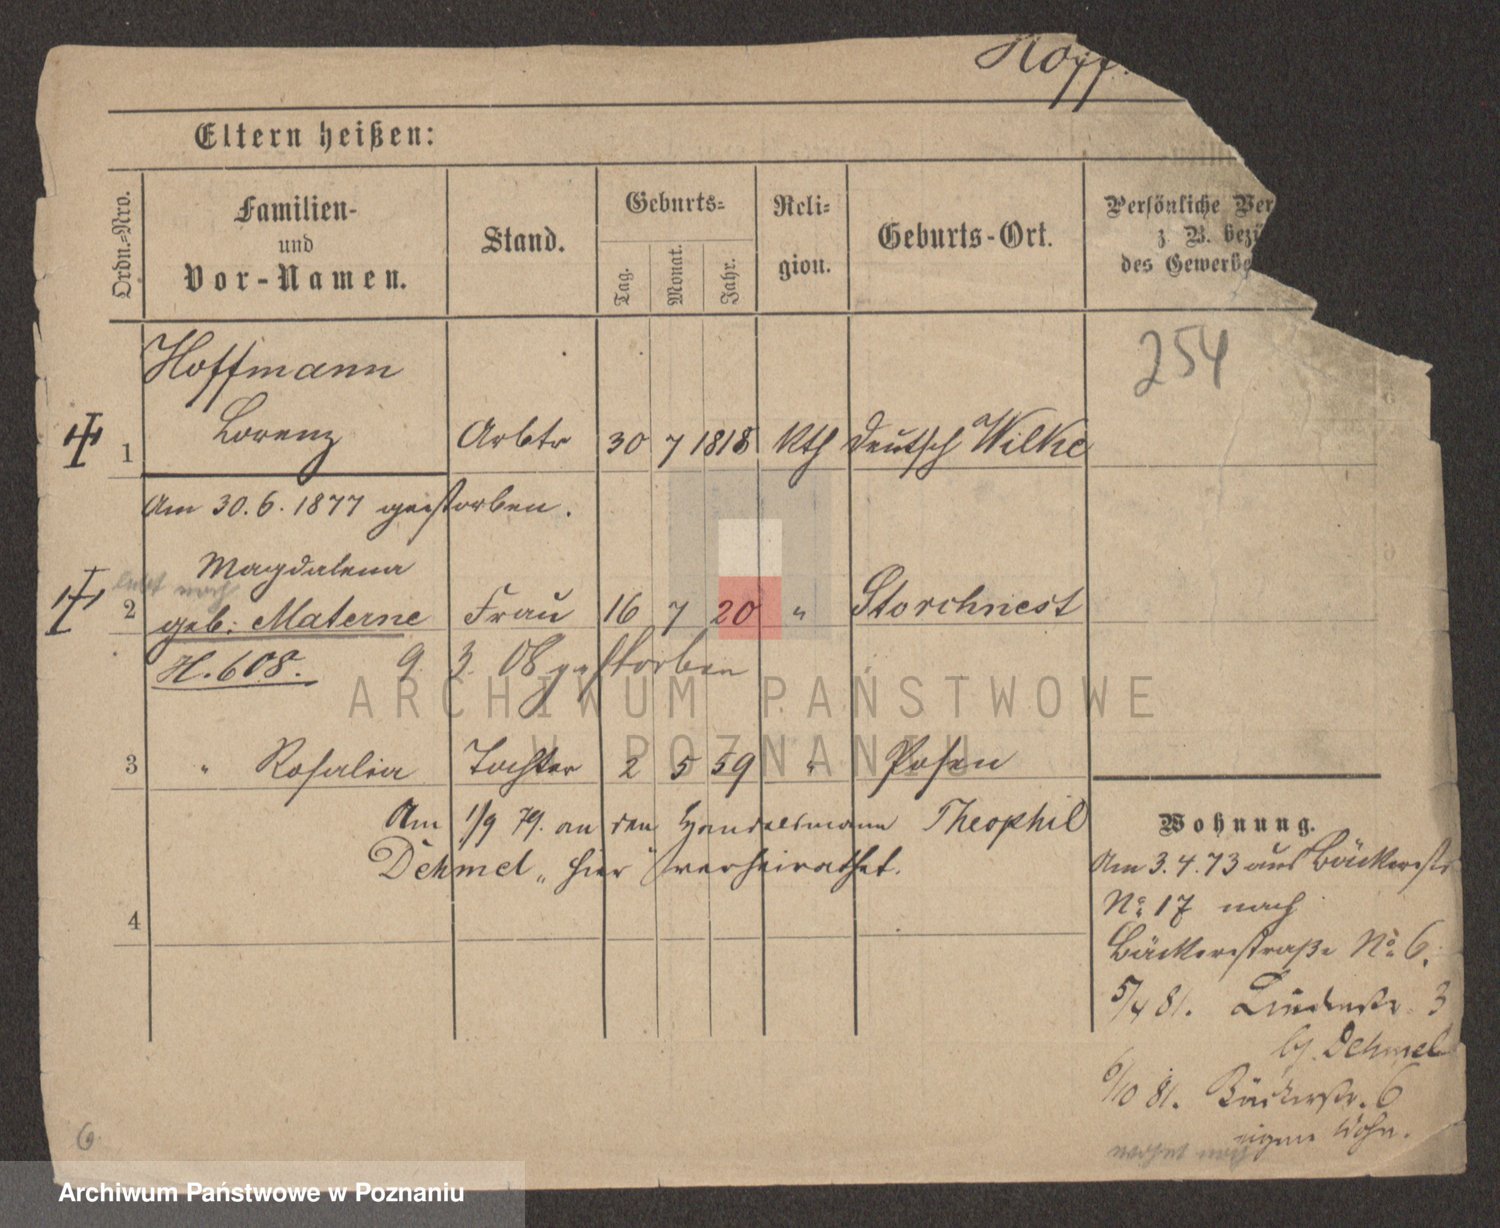 Hoff.
Eltern heißen:
Ordn.-Nro.
Familien-
und
Vor-Namen.
Stand.
Geburts-
Tag.
Monat.
Jahr.
Reli-
gion.
Geburts-Ort.
Persönliche Ver
z. B. bezü
des Gewerbe
254
Hoffmann
1 Lorenz Arbtr 30 7 1818 Kth Deutsch Wilke
Am 30.6.1877 gestorben.
Magdalena
lebt noch
2 geb. Materne Frau 16 7 20 " Storchnest
H. 608. 9. 3. 08 gestorben
3 " Rosalia Tochter 2 5 59 " Posen
Am 1/9 79. an den Handelsmann Theophil
Dehmel „hier“ verheirathet.
4
Wohnung.
Am 3.4.73 aus Bäckerstr
No 17 nach
Bäckerstraße No 6.
5/4 81. Lindenstr. 3
bj. Dehmel
6/10 81. Bäckerstr. 6
eigene Wohn.
wohnt noch
6
ARCHIWUM PAŃSTWOWE
W POZNANIU
Archiwum Państwowe w Poznaniu